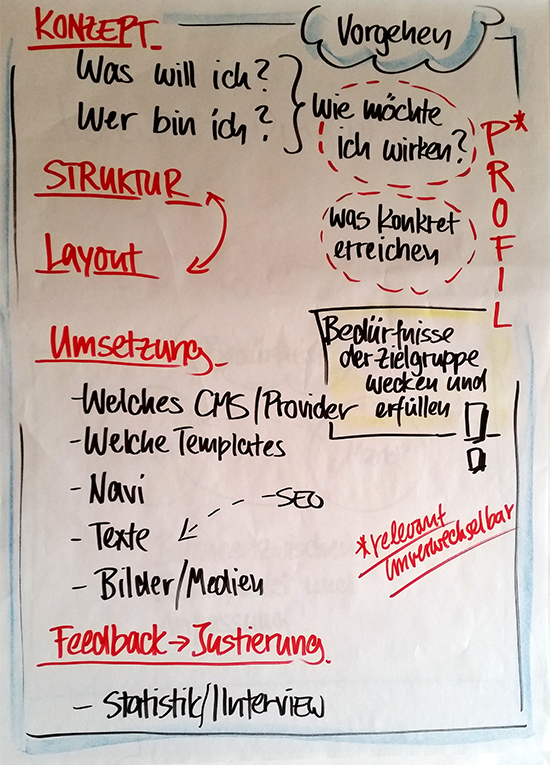 Vorgehen
KONZEPT
Was will ich?
Wer bin ich?
Wie möchte
ich wirken?
was konkret
erreichen
PROFIL*
STRUKTUR
Layout
Bedürfnisse
der Zielgruppe
wecken und
erfüllen !
Umsetzung
- Welches CMS/Provider
- Welche Templates
- Navi
- Texte
- SEO
- Bilder/Medien
*relevant
unverwechselbar
Feedback → Justierung
- Statistik/Interview